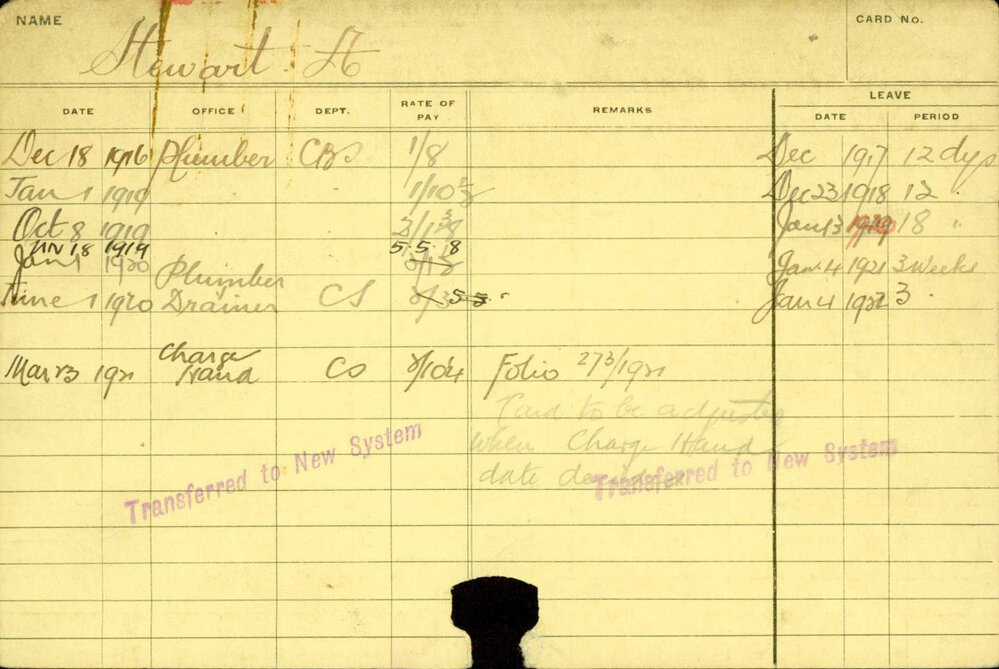 NAME
CARD No.
Stewart. A
LEAVE
DATE OFFICE DEPT. RATE OF PAY REMARKS DATE PERIOD
Dec 18 1916 Plumber CBS 1/8 Dec 1917 12 dys
Jan 1 1919 1/10½ Dec 23 1918 12 "
Oct 8 1919 Jan 13 18 "
JAN 18 1919 5.5.8
Jan 1 1920 Jan 4 1921 3 Weeks
Plumber
June 1 1920 Drainer CS Jan 4 1922 3 "
Charge
Mar 23 1921 Hand CS Folio 273/1921
Card to be adjusted
when Charge Hand
date
Transferred to New System
Transferred to New System